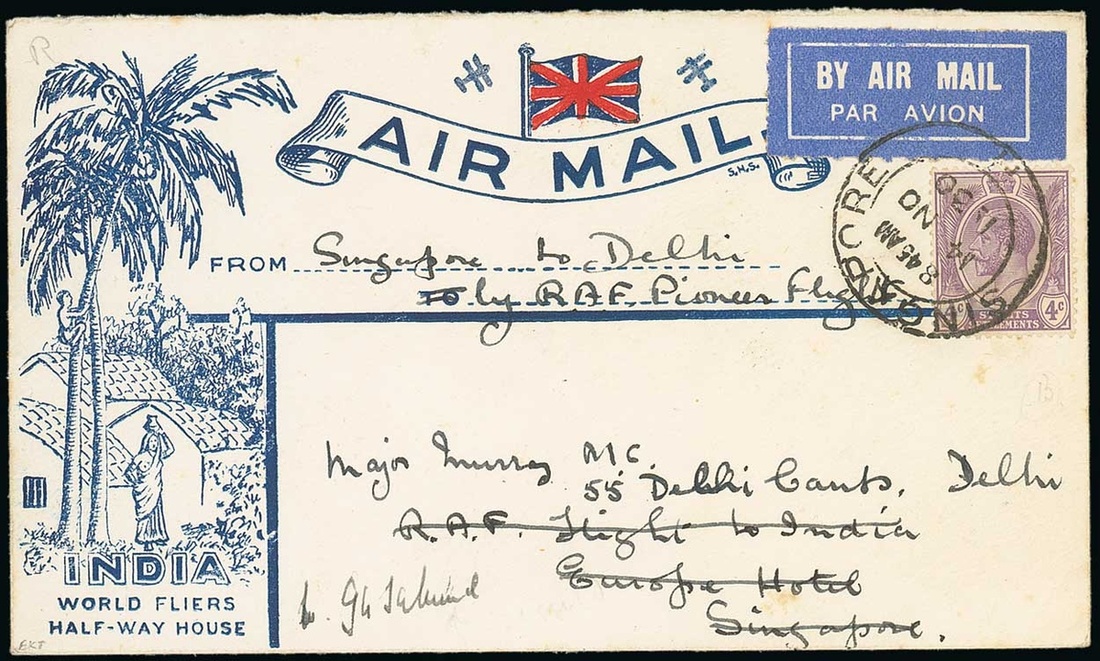 R
BY AIR MAIL
PAR AVION
AIR MAIL.
S.N.S.
SINGAPORE
8.45 AM
14 NO
FROM Singapore to Delhi
To by R.A.F. Pioneer Flight
4c
STRAITS
SETTLEMENTS
(B)
Major Murray M.C.
55 Delhi Cants, Delhi
R.A.F. Flight to India
Europe Hotel
Singapore.
INDIA
WORLD FLIERS
HALF-WAY HOUSE
EKT